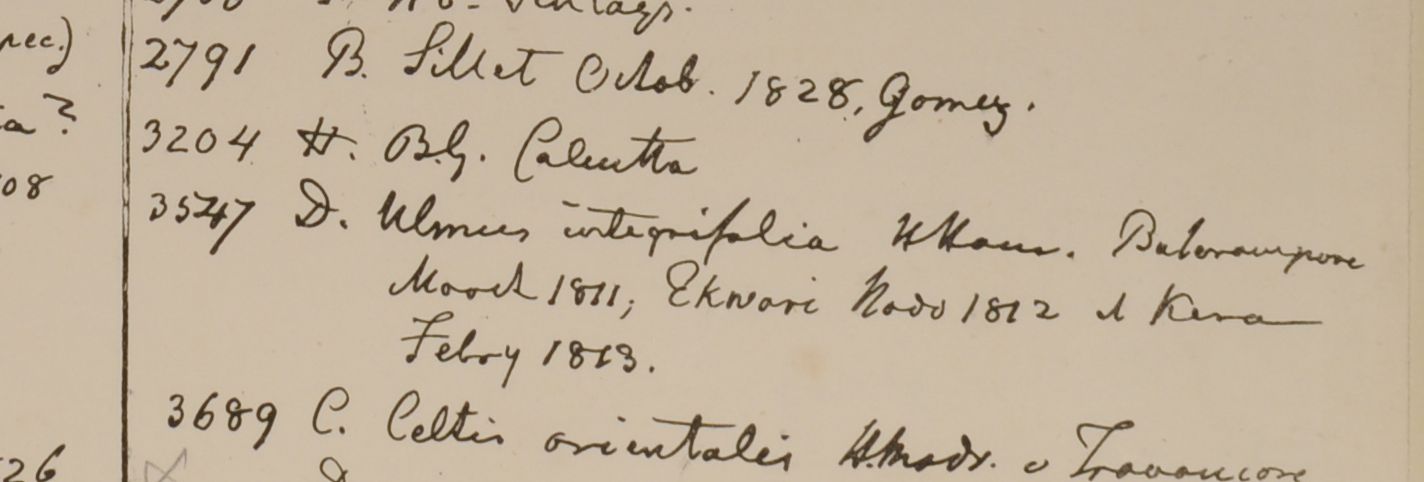 2791 B. Sillet Octob. 1828, Gomez.
a ?
3204 H. B.G. Calcutta
08
3547 D. Ulmus integrifolia HHam.
March 1811; Ekwari Novr 1812 d Kera
Febry 1813.
3689 C. Celtis orientalis H.Madr. e Travancore
26